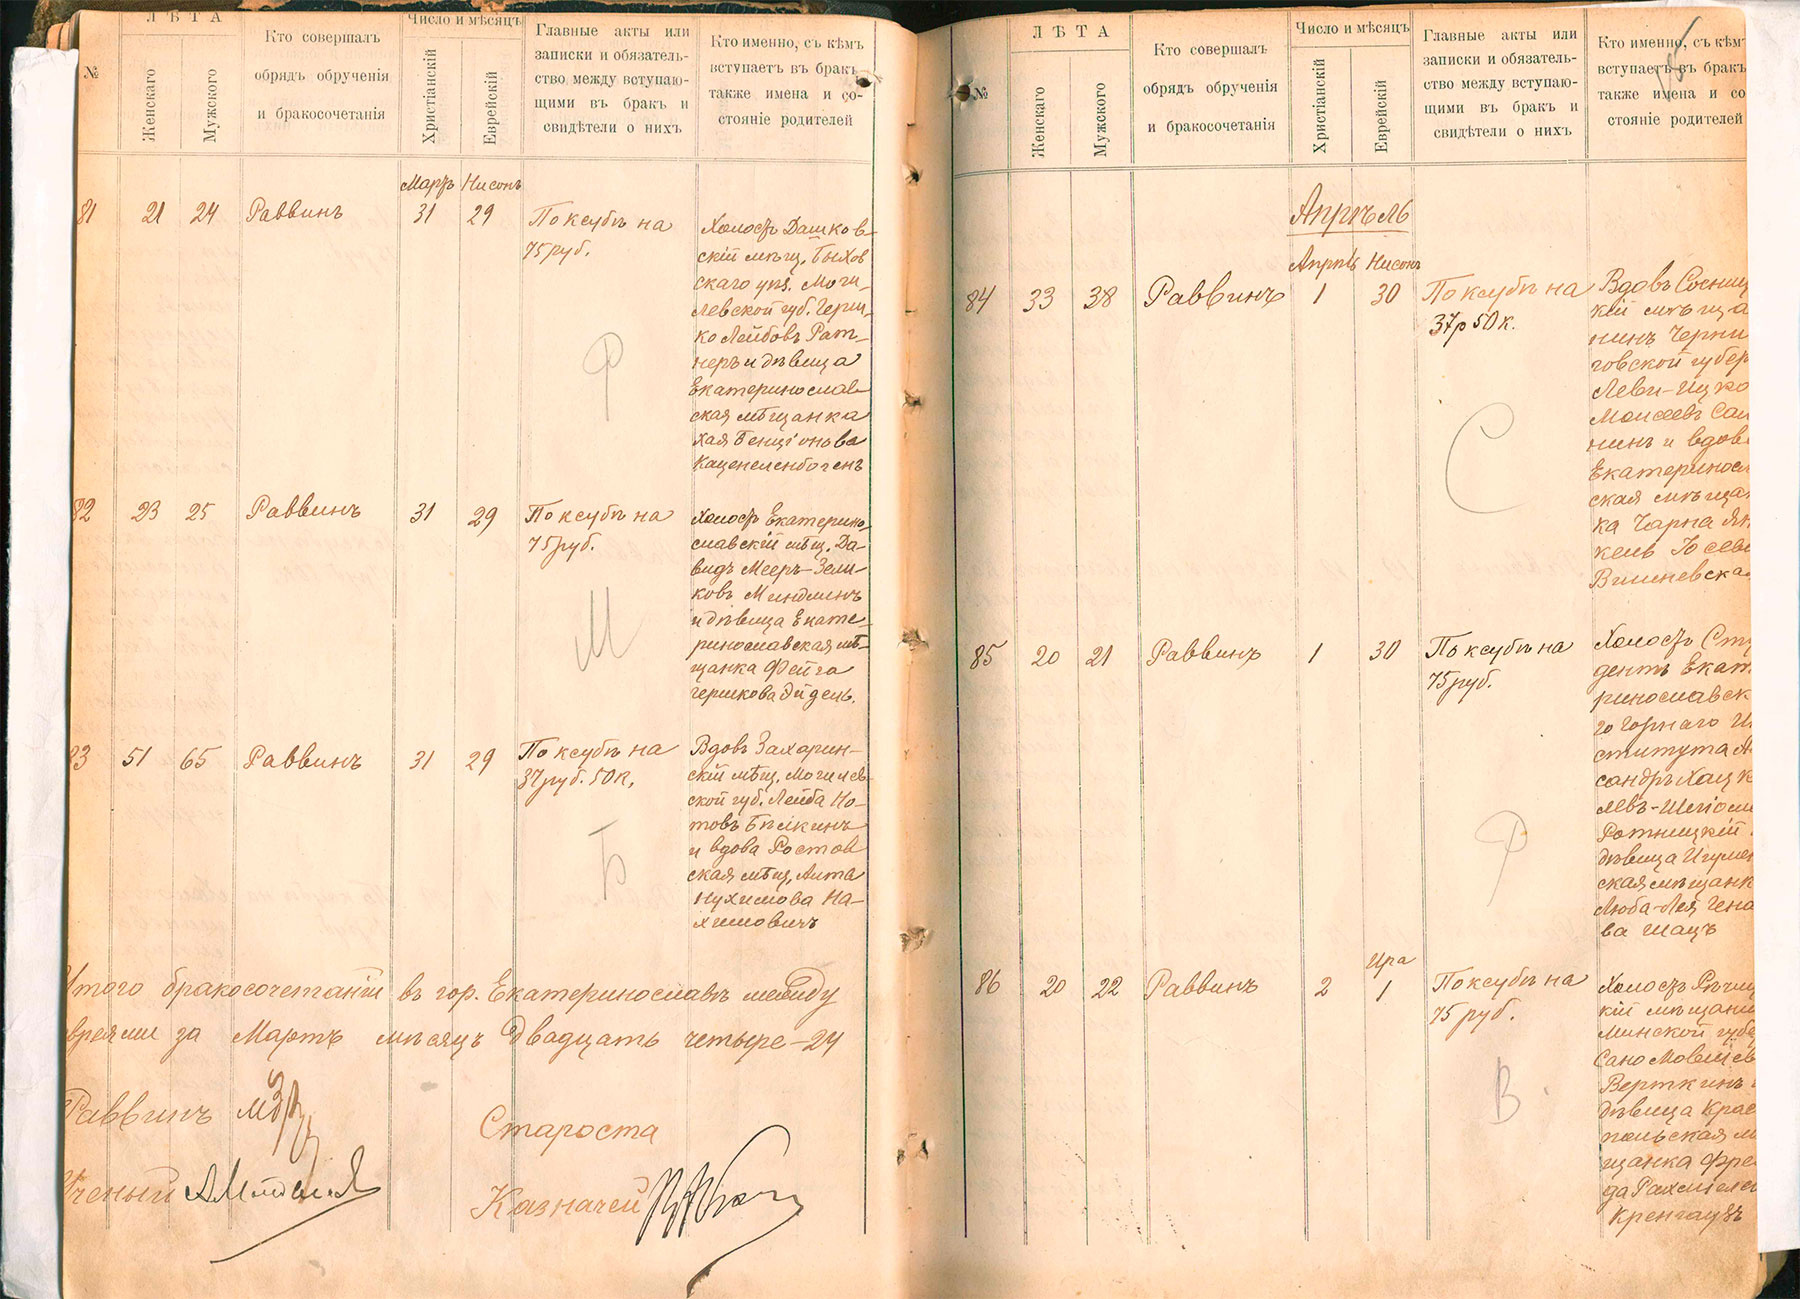 №
ЛѢТА
Женскаго
Мужского
Кто совершалъ
обрядъ обрученія
и бракосочетанія
Число и мѣсяцъ
Христіанскій
Еврейскій
Главные акты или
записки и обязатель-
ство между вступаю-
щими въ бракъ и
свидѣтели о нихъ
Кто именно, съ кѣмъ
вступаетъ въ бракъ
также имена и со-
стояніе родителей
Мартъ Нисонъ
81 21 24 Раввинъ 31 29
По ксубѣ на
75 руб.
Ф
Холостъ Дашков-
скій мѣщ. Быхов
скаго уѣз. Моги-
левской губ. Герш-
ко Лейбовъ Рат-
неръ и дѣвица
Екатеринослав-
ская мѣщанка
Хая Бенціонова
Каценеленбогенъ
82 23 25 Раввинъ 31 29
По ксубѣ на
75 руб.
М
Холостъ Екатерино-
славскій мѣщ. Да-
видъ Мееръ-Зели-
ковъ Миндлинъ
и дѣвица Екате-
ринославская мѣ-
щанка Фейга
Гершкова Эйдень.
83 51 65 Раввинъ 31 29
По ксубѣ на
37 руб. 50 к.
Б
Вдовъ Захарин-
скій мѣщ. Могилев-
ской губ. Лейба Но-
товъ Бѣлкинъ
и вдова Ростов
ская мѣщ. Алта
Нухимова На-
химовичъ
Итого бракосочетаній въ гор. Екатеринославѣ между
евреями за Мартъ мѣсяцъ двадцать четыре-24
Раввинъ
Староста
Ученый
Казначей
№
ЛѢТА
Женскаго
Мужского
Кто совершалъ
обрядъ обрученія
и бракосочетанія
Число и мѣсяцъ
Христіанскій
Еврейскій
Главные акты или
записки и обязатель-
ство между вступаю-
щими въ бракъ и
свидѣтели о нихъ
Кто именно, съ кѣмъ
вступаетъ въ бракъ
также имена и со
стояніе родителей
Апрѣль
Апрѣль Нисонъ
84 33 38 Раввинъ 1 30
По ксубѣ на
37 р 50 к.
С
Вдовъ Сосниц
кій мѣща
нинъ Черни
говской губер
Леви-Ицко
Моисеевъ Сам
нинъ и вдова
Екатериносл
ская мѣщан
ка Чарна Ян
кель Іосева
Вишневская
85 20 21 Раввинъ 1 30
По ксубѣ на
75 руб.
Р
Холостъ Сту
дентъ Екат
ринославск
го Горнаго Ин
ститута Ал
сандръ Хацк
левъ-Шліом
Ротницкій
дѣвица Игумен
ская мѣщанк
Люба-Лея Гена
ва Шацъ
Ира
86 20 22 Раввинъ 2 1
По ксубѣ на
75 руб.
В
Холостъ Рѣчиц
кій мѣщани
Минской губе
Сано Мовшев
Верткинъ
дѣвица Крас
польская м
щанка Фре
да Рахмиле
Кренгаузъ